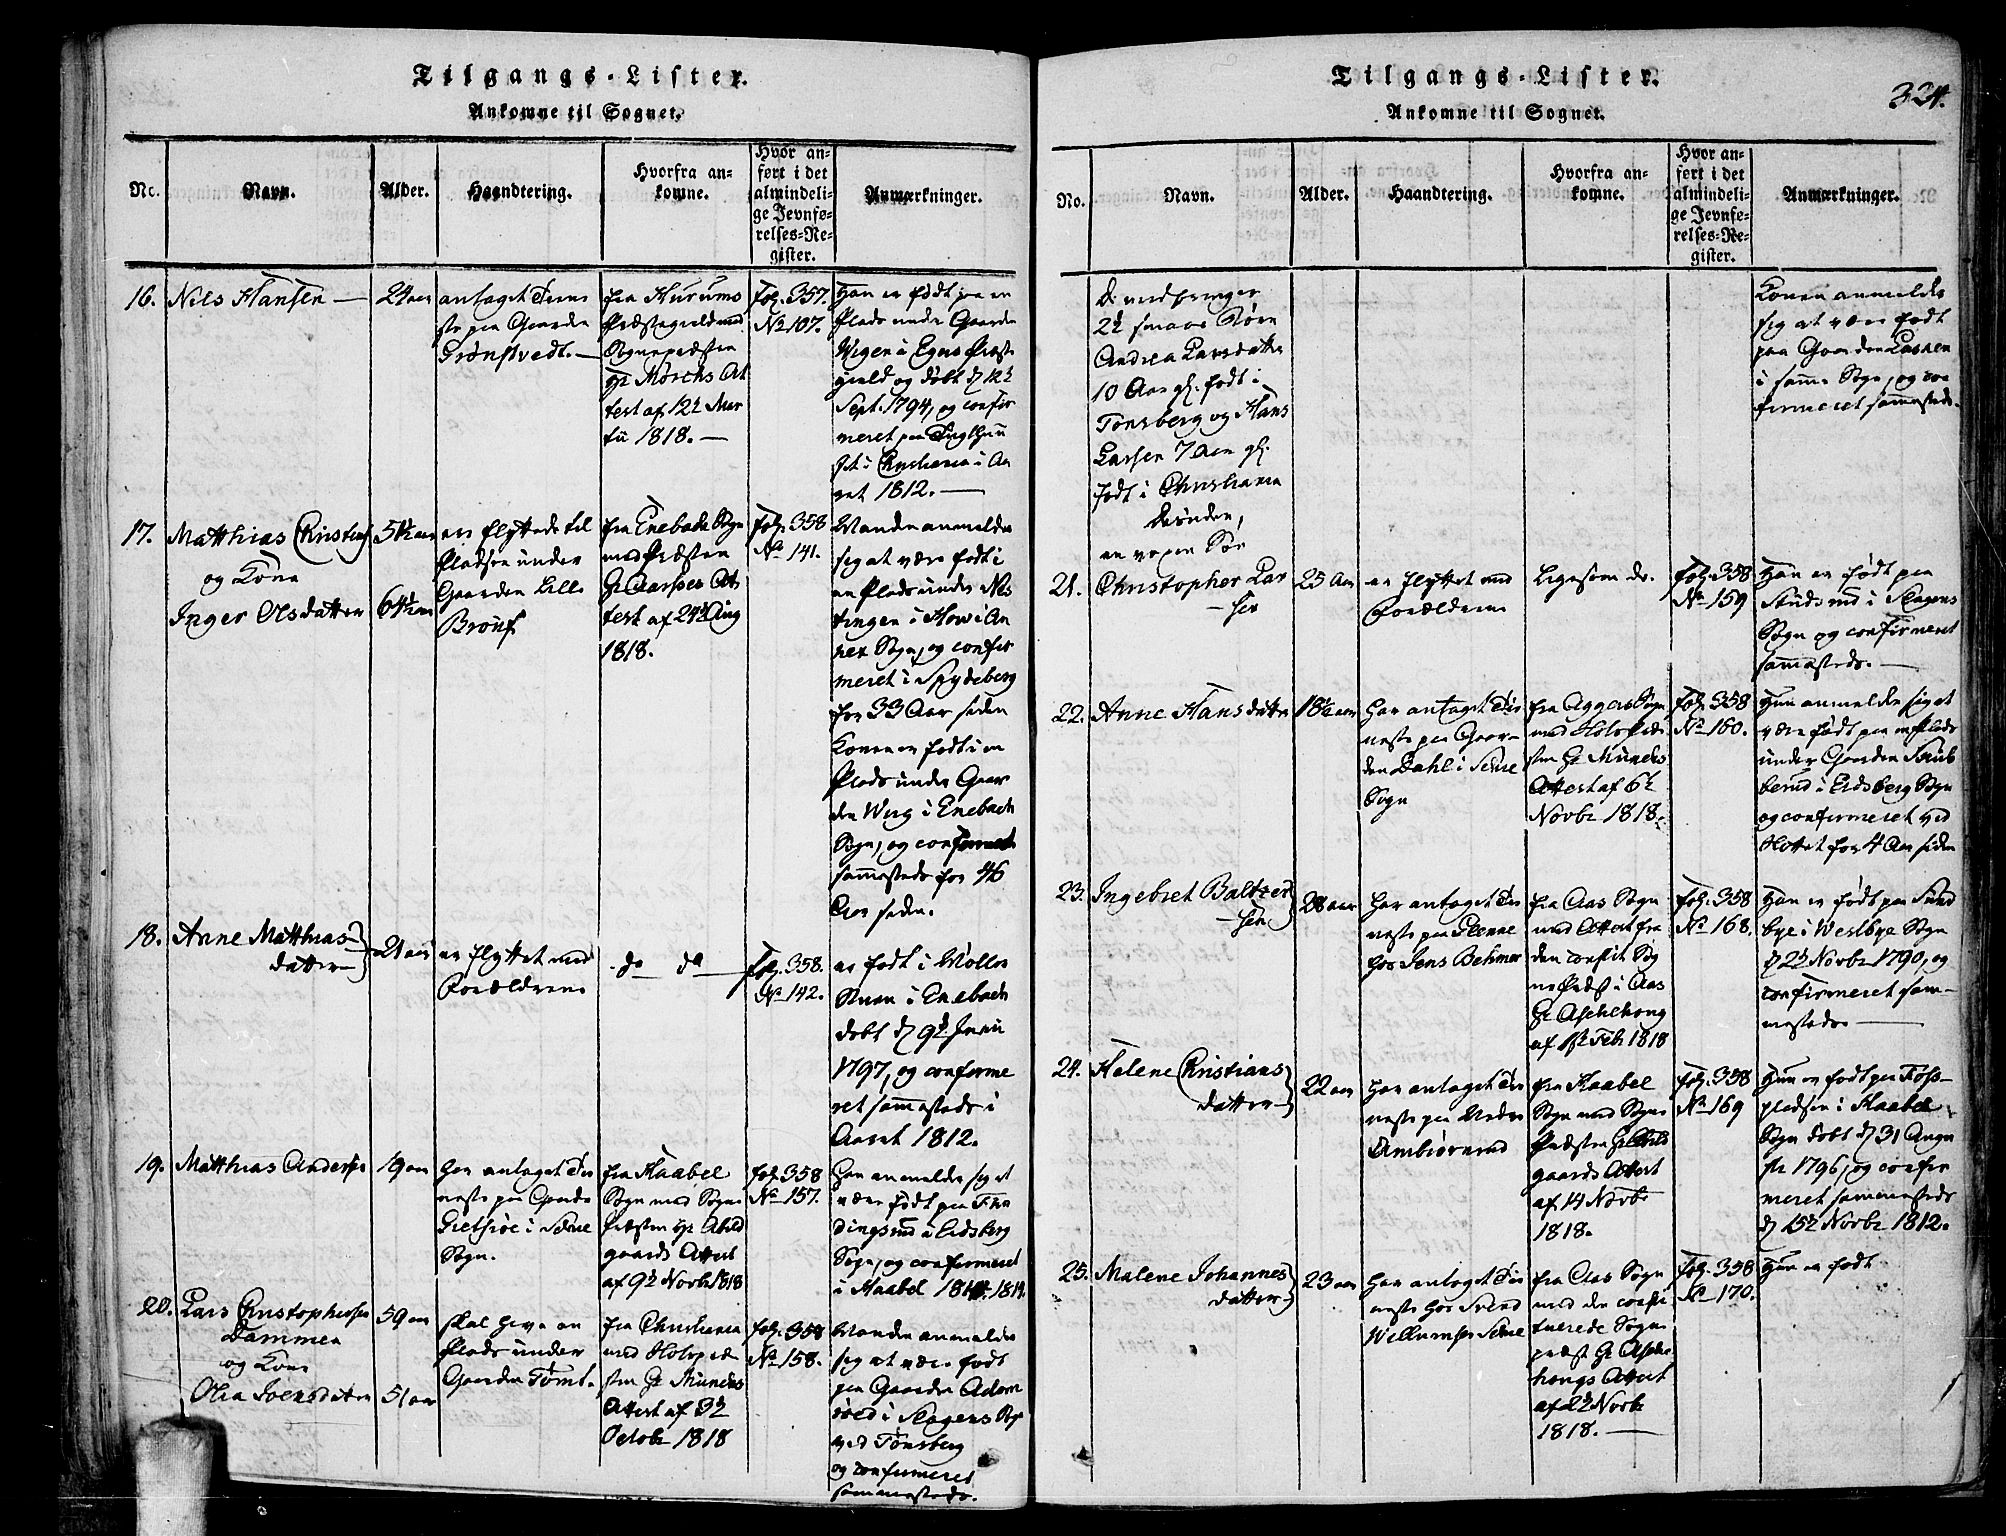 Tilgangs-Lister.
Ankomne til Sognet.
No.
Navn.
Alder.
Haandtering.
Hvorfra an-
komne.
Hvor an-
ført i det
almindeli-
ge Jevnfø-
relses-Re-
gister.
Anmærkninger.
16.
Nils Hansen
24 aar
antaget Tiene
ste paa Gaarden
Grønstvedt.
fra Hurums
Præstegield med
Sognepræsten
Hr Mørchs At
test af 12te Mar
tii 1818.
Fol. 357.
No 107.
Han er født paa en
Plads under Gaarden
Wegen i Egers Præste
gield og døbt d 12te
Sept. 1794, og confir
meret paa Tugthuu
set i Christiania i Aa
ret 1812.
17.
Matthias Christens
og Kone
Inger Olsdatter
54½ aar
64½ aar
er flyttede til
Pladsen under
Gaarden Lille
Brønf
fra Enebak Sogn
med Præsten
Hr Aarsses At
test af 24de Aug
1818.
Fol. 358
No 141.
Manden anmelder
sig at være født i
en Plads under Nes
tingen i Howi An
nex Sogn, og confir
meret i Spydeberg
for 33 Aar siden
Konen er født i en
Plads under Gaar
den Werg i Enebach
Sogn, og confirmeret
sammesteds for 46
Aar siden.
18.
Anne Matthias-
datter
21 aar
er flyttet med
Forældrene
do do
Fol. 358.
No 142.
er født i Wolles
i Enebach
døbt d 9de Junii
1797, og confirme
ret sammesteds i
Aaret 1812.
19.
Matthias Andersen
19 aar
har antaget Tie
neste paa Gaarden
i Schie
Sogn.
fra Haabel
Sogn med Sogne
Præsten Hr Abild
gaards Attest
af 9de Novbr 1818
Fol. 358
No 157.
Han anmelder sig at
være født paa
dingsrud i Eidsberg
Sogn, og confirmeret
i Haabel 1814.
20.
Lars Christophersen
Dammen
og Kone
Olia Joensdatter
59 aar
51 aar
skal have en
Plads under
Gaarden Tømt.
fra Christiania
med Holspræ
sten Hr Munchs
Attest af 3de
Octobr 1818
Fol. 358
No 158.
Manden anmelder
sig at være født
paa Gaarden Adam
rød i Slagens Sogn
ved Tønsberg
og confirmeret
sammesteds.
Tilgangs-Lister.
Ankomne til Sognet.
324.
No.
Navn.
Alder.
Haandtering.
Hvorfra an-
komne.
Hvor an-
ført i det
almindeli-
ge Jevnfø-
relses-Re-
gister.
Anmærkninger.
De medbringer
2de smaae Børn
Andrea Larsdatter
10 Aar gl. født i
Tønsberg og Hans
Larsen 7 Aar gl.
født i Christiania
desuden,
en voxen Søn
Konen anmelder
sig at være født
paa Gaarden
i samme Sogn, og con
firmeret sammesteds.
21.
Christopher Lar
sen
25 Aar
er flyttet med
Forældrene
Ligesom de.
Fol. 358
No 159
Han er født paa
i Slagens
Sogn og confirmeret
sammesteds.
22.
Anne Hansdatter
18½ aar
har antaget Tie
neste paa Gaar-
den Dahl i Schie
Sogn
fra Aggers Sogn
med Holspræ
sten Hr Munchs
Attest af 6te
Novbr 1818.
Fol. 358
No 160.
Hun anmelder sig at
være født paa en Plads
under Gaarden Skub
berud i Eidsberg Sogn
og confirmeret ved
Slottet for 4 Aar siden
23.
Ingebret Baltzer
sen
28 aar
har antaget Tie
neste paa
hos Jens Behmer
fra Aas Sogn
med Attest fra
den constit Sog
ne Præst i Aas
Hr Aschehoug
af 1ste Feb 1818
Fol. 358
No 168.
Han er født paa Sund
bye i Westbye Sogn
d 2de Novbr 1790, og
confirmeret sam-
mesteds
24.
Helene Christians
datter
22 aar
har antaget Tie
neste paa Nedre
Ambiørnrud
fra Haabel
Sogn med Sogne
Præsten Hr Abild
gaards Attest
af 14 Novbr
1818.
Fol. 358
No 169
Hun er født paa Foss-
pladsen i Haabel
Sogn døbt d 31 Augu
sti 1796, og confir
meret sammesteds
d 15de Novbr 1812.
25.
Malene Johannes
datter
23 aar
har antaget Tie
neste hos Svend
Willumsen Schie
fra Aas Sogn
med den consti
tuerede Sogne
præst Hr Asche
hougs Attest
af 2de Novbr
1818.
Fol. 358
No 170.
Hun er født